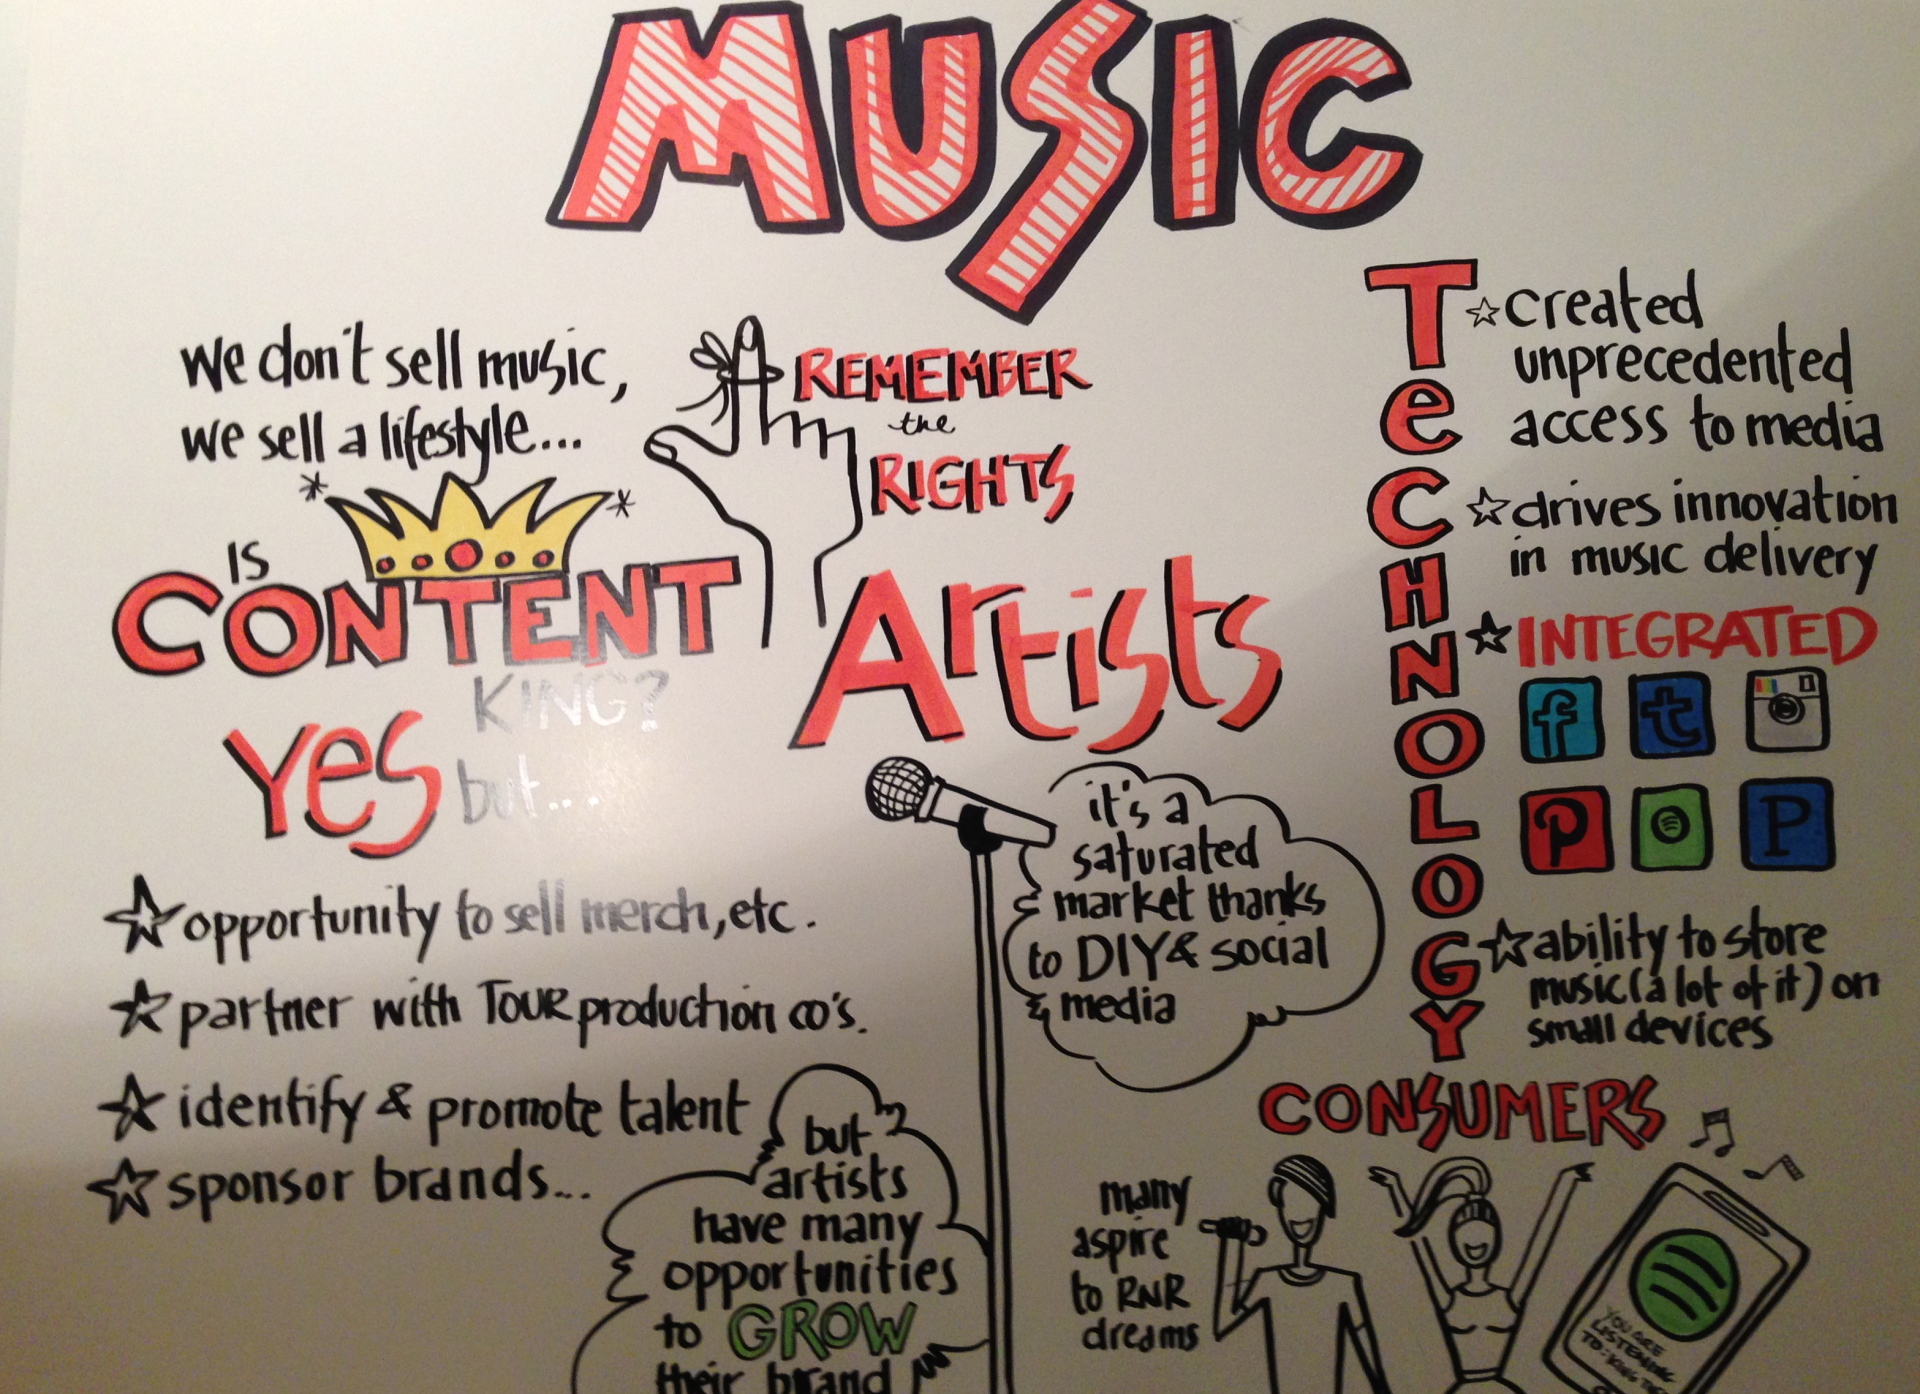 MUSIC
We don't sell music,
we sell a lifestyle...
REMEMBER
the
RIGHTS
IS
CONTENT
KING?
Yes but...
opportunity to sell merch, etc.
partner with TOUR production co's.
identify & promote talent
sponsor brands...
Artists
it's a
saturated
market thanks
to DIY & social
media
but
artists
have many
opportunities
to GROW
their brand
TeCHNOLOGY
created
unprecedented
access to media
drives innovation
in music delivery
INTEGRATED
f
t
P
P
ability to store
music (a lot of it) on
small devices
CONSUMERS
many
aspire
to RNR
dreams
YOU ARE
LISTENING
TO: KING